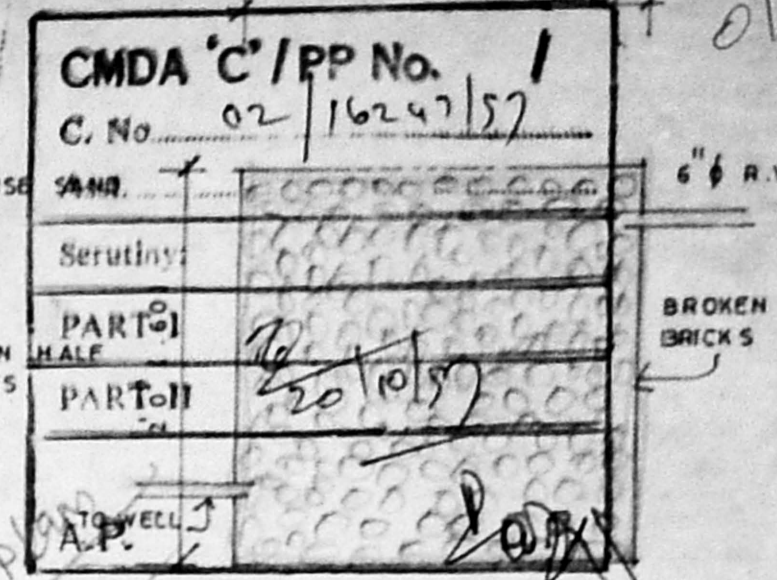 CMDA 'C' / PP No. 1
C. No. 02/16247/57
SAND.
6" ϕ R.
Scrutiny:
PART-I
BROKEN
BRICKS
HALF
PART-II
20/10/57
TO WELL
A.P.
plan